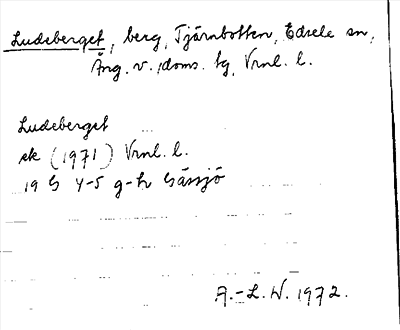 Ludeberget, berg, Tjärnbotten, Edsele sn,
Ång. v. doms. tg, Vrnl. l.
Ludeberget
ek (1971) Vrnl. l.
19 G 4-5 g-h Gåssjö
A.-L. W. 1972.